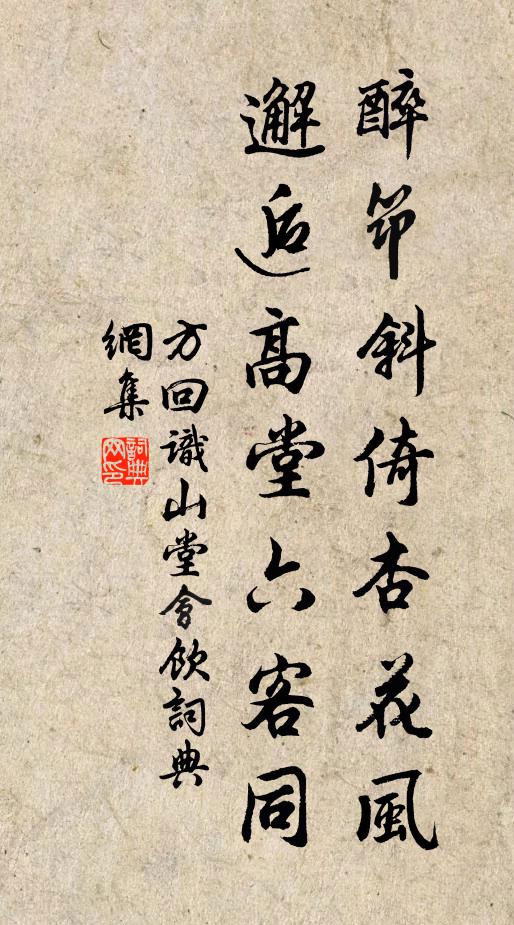 醉筇斜倚杏花風
邂逅高堂六客同
方回識山堂會飲詞典
網集
詞典
网印